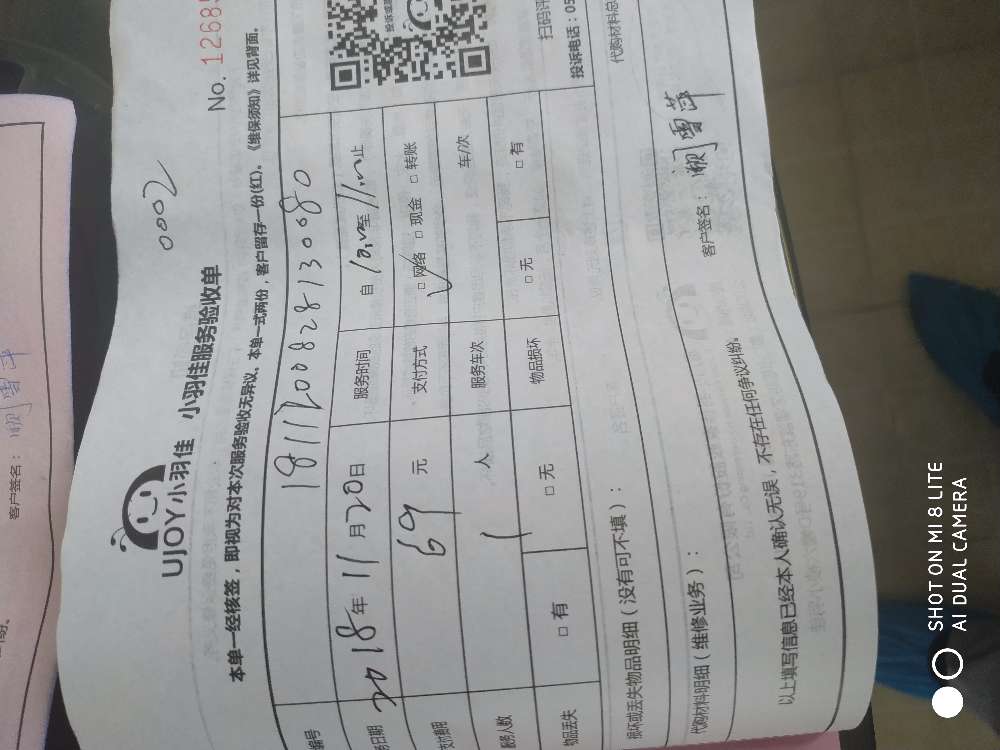 No. 12685
0002
UJOY小羽佳 小羽佳服务验收单
本单一经核签，即视为对本次服务验收无异议、本单一式两份，客户留存一份(红)。《维保须知》详见背面。
编号 1811200828130080
务日期 2018年11月20日 服务时间 自 10:00至11:00止
支付费用 69元 支付方式 □网络 □现金 □转账
服务人数 1人 服务车次 车/次
物品丢失 □有 □无 物品损坏 □无 □有
损坏或丢失物品明细（没有可不填）：
扫码评
投诉电话：05
代购材料明细（维修业务）：
代购材料总
以上填写信息已经本人确认无误，不存在任何争议纠纷。
客户签名：
客户签名：
SHOT ON MI 8 LITE
AI DUAL CAMERA